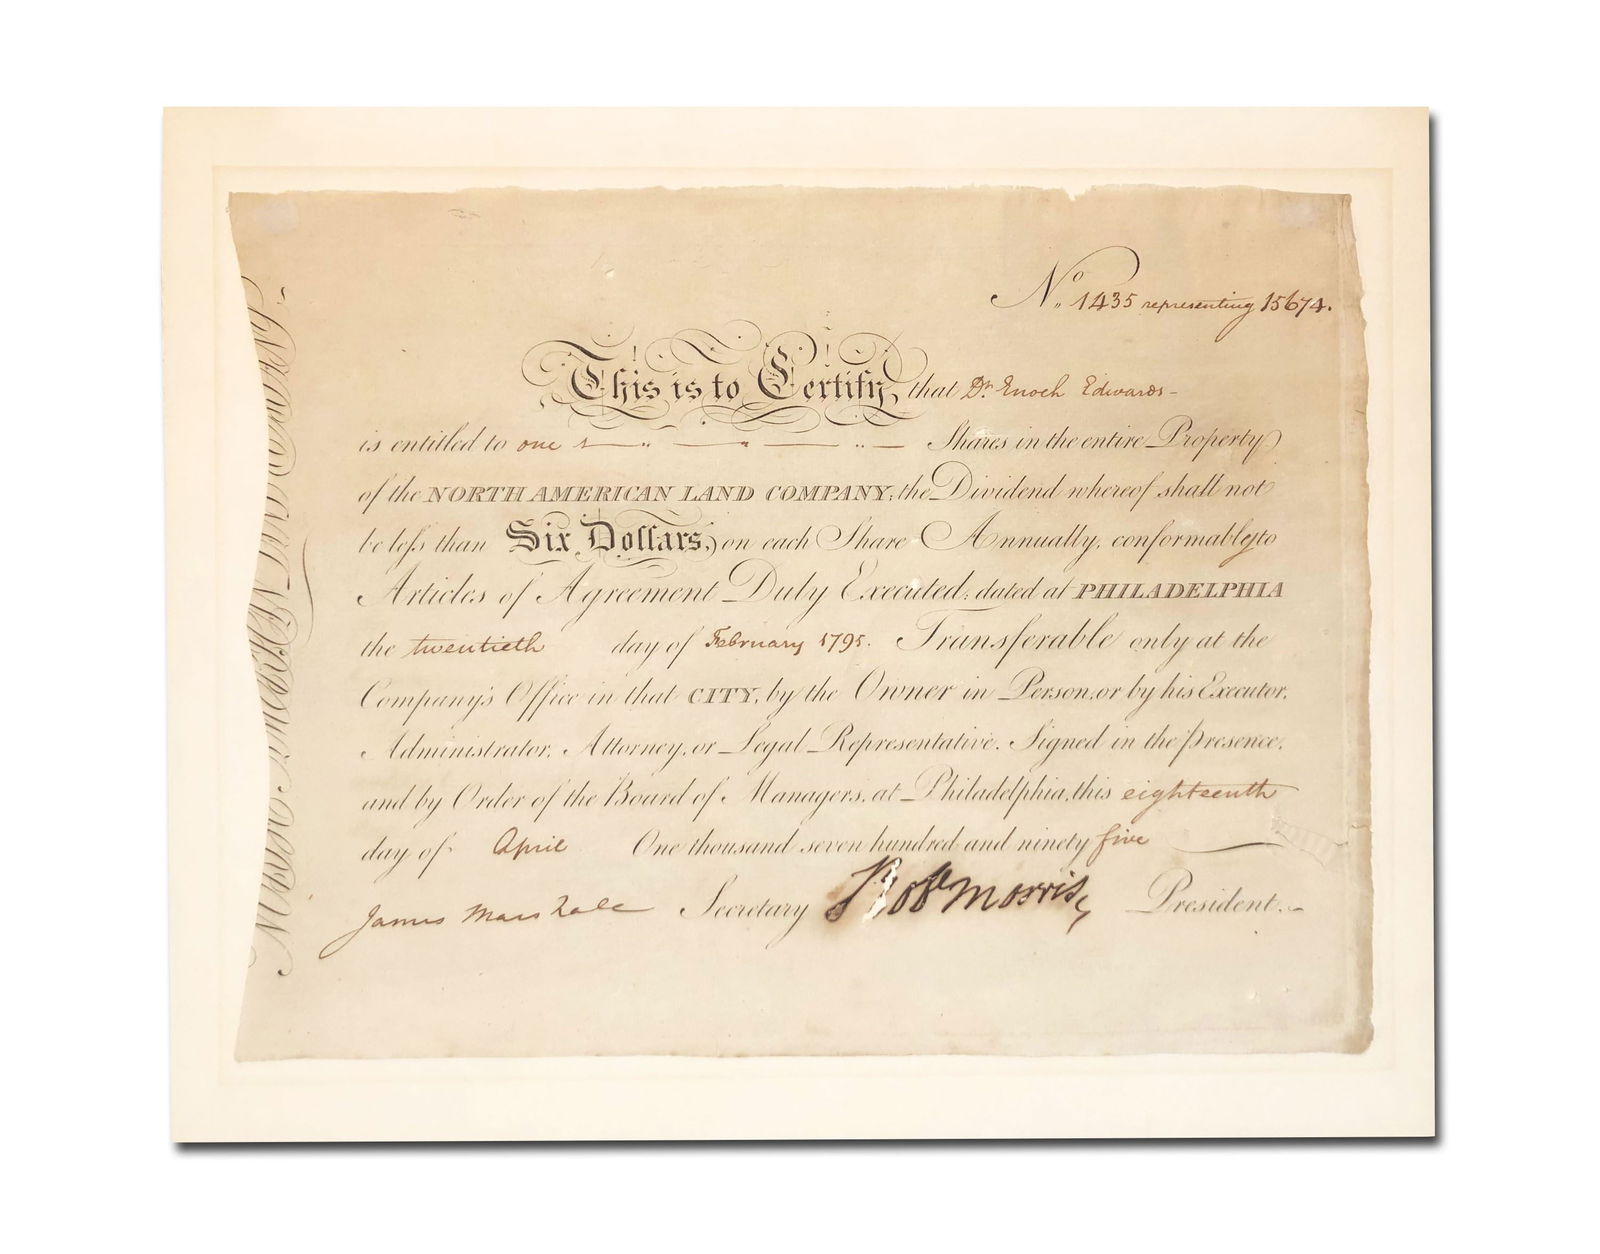 No. 1435 representing 15674.
This is to Certify, that Dr. Enoch Edwards -
is entitled to one s — " — " — " — Shares in the entire Property
of the NORTH AMERICAN LAND COMPANY; the Dividend whereof shall not
be leſs than Six Dollars, on each Share Annually, conformably to
Articles of Agreement Duly Executed; dated at PHILADELPHIA
the twentieth day of February 1795. Transferable only at the
Company's Office in that CITY, by the Owner in Person, or by his Executor,
Administrator, Attorney, or Legal Representative. Signed in the presence,
and by Order of the Board of Managers, at Philadelphia, this eighteenth
day of April One thousand seven hundred and ninety five
James Marshall Secretary Robt Morris President.